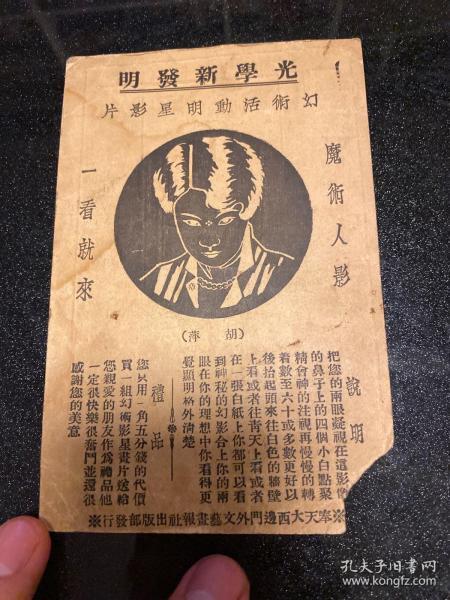 光學新發明
幻術活動明星影片
魔術人影
一看就來
(胡萍)
說明
把您的兩眼凝視在這影像
的鼻子上的四個小白點聚
精會神的注視再慢慢的轉
着數至六十或多數更好以
後抬起頭來往白色的牆壁
上看或者往青天上看或者
在一張白紙上你都可以看
到神秘的幻影合上你的兩
眼在你的理想中你看得更
覺顯明格外清楚
禮品
您只用一角五分錢的代價
買一組幻術影星畫片送給
您親愛的朋友作為禮品他
一定很快樂很奮鬥並還很
感謝您的美意
※奉天大西邊門外文藝畫報社出版部發行※
孔夫子旧书网
www.kongfz.com